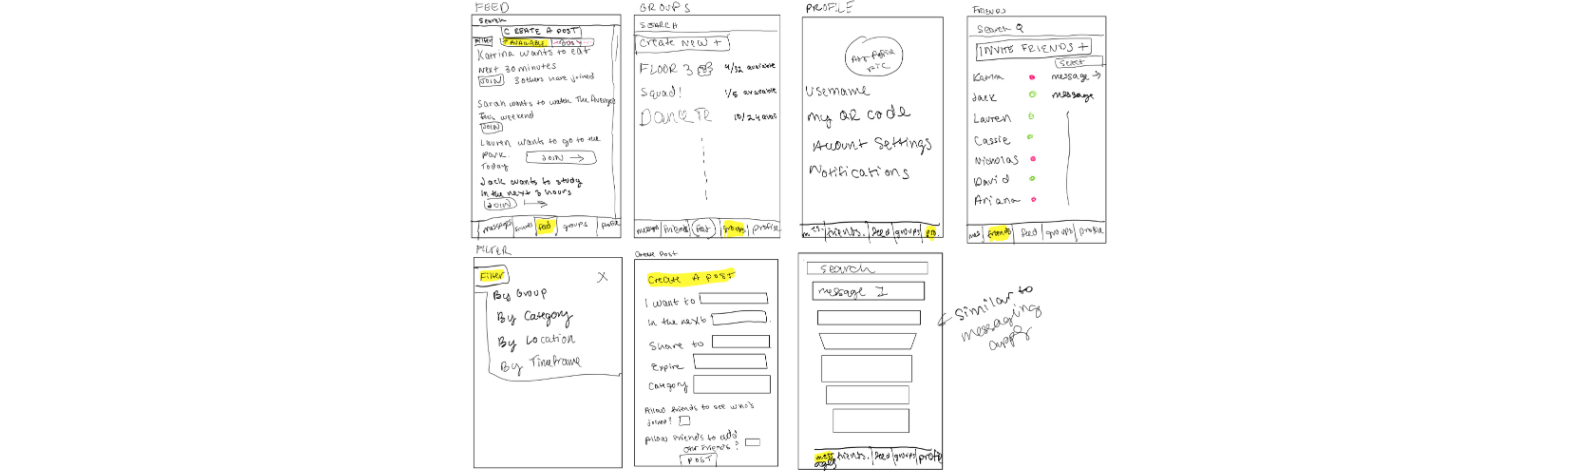 FEED
Search
CREATE A POST
Filter
AVAILABLE
BUSY
Katrina wants to eat
Next 30 minutes
JOIN 3 others have joined
Sarah wants to watch The Avengers
This weekend
JOIN
Lauren wants to go to the
park.
Today
JOIN →
Jack wants to study
In the next 3 hours
JOIN
messages friends feed groups profile
GROUPS
SEARCH
Create New +
FLOOR 3 4/32 available
Squad! 1/5 available
DANCE TE 10/24 avail
messages friends feed groups profile
PROFILE
pic
Username
My QR code
Account Settings
Notifications
friends. feed groups pro.
FRIENDS
Search
INVITE FRIENDS +
Select
Katrina message →
Jack message
Lauren
Cassie
Nicholas
David
Ariana
mes friends feed groups profile
FILTER
Filter X
By Group
By Category
By Location
By Timeframe
Create Post
Create A POST
I want to
In the next
Share to
Expire
Category
Allow friends to see who's
joined?
Allow friends to add
our friends?
POST
search
message 1
messages friends. feed groups profile
Similar to
messaging
apps